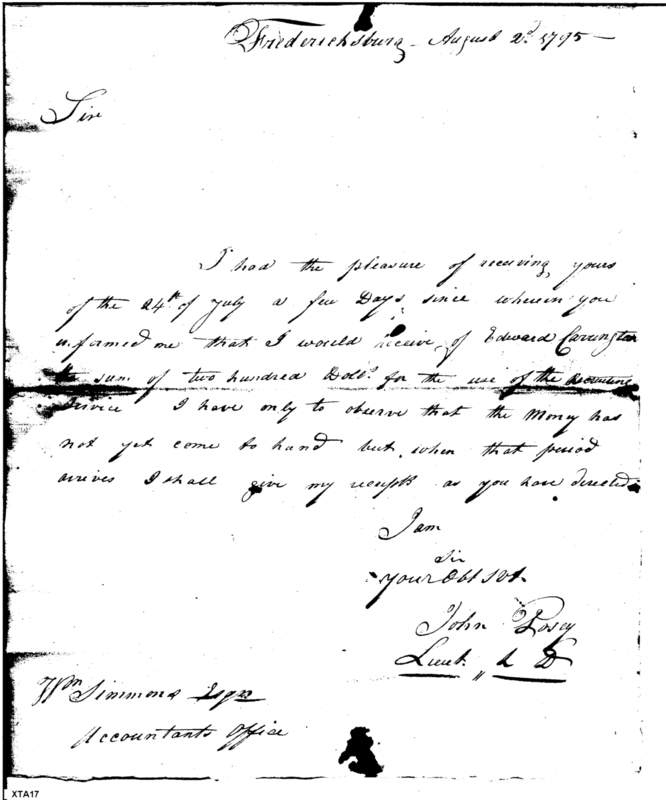 Fredericksburg - August 2d. 1795 -
Sir
I had the pleasure of receiving yours
of the 24th of July a few Days, since wherein you
informed me that I would receive, of Edward Carrington
the sum of two hundred Dolls for the use of the Recruiting
Service I have only to observe that the Money has
not yet come to hand but, when that period
arrives I shall give my receipt as you have directed
I am
Sir
your Obt Svt.
John Posey
Lieut " L D
Wm Simmons Esqr
Accountants Office
XTA17